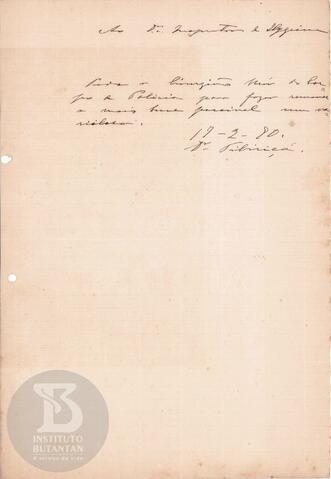 Ao Dr. Inspector de Hygiene
Pede o Cirurgião Mór do Cor-
po de Policia para fazer remover
o mais breve possivel um va-
rioloso.
17-2-90.
Dr. Tibiriçá
INSTITUTO
BUTANTAN
A serviço da vida